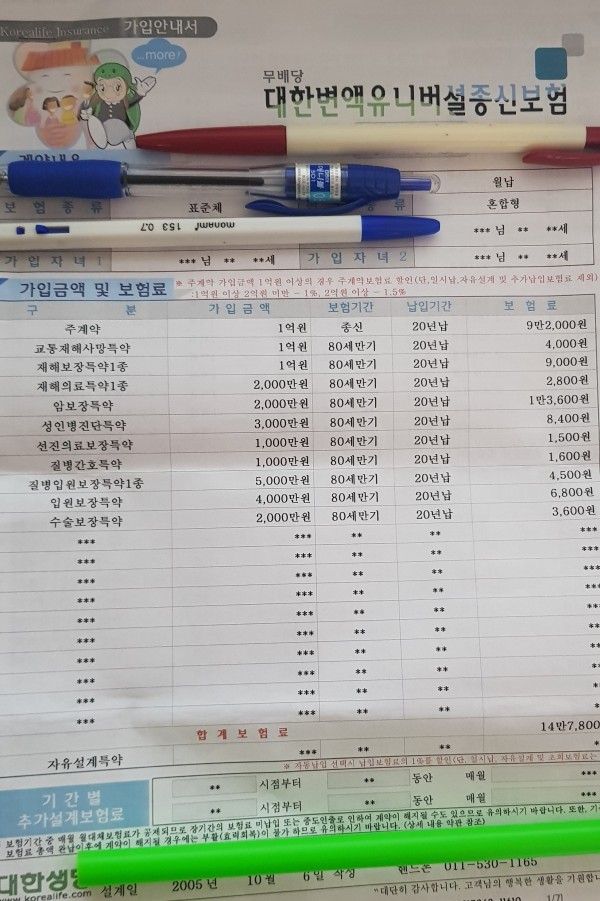 Korealife Insurance 가입안내서
...more!
무배당
대한변액유니버설종신보험
계약내용
월납
보험종류 표준체 혼합형
monami 153 0.7
가입자녀1 *** 님 ** **세 가입자녀2 *** 님 ** **세
가입금액 및 보험료 * 주계약 가입금액 1억원 이상의 경우 주계약보험료 할인(단,일시납,자유설계 및 추가납입보험료 제외)
:1억원 이상 2억원 미만 - 1%, 2억원 이상 - 1.5%
구 분 가입금액 보험기간 납입기간 보 험 료
주계약 1억원 종신 20년납 9만2,000원
교통재해사망특약 1억원 80세만기 20년납 4,000원
재해보장특약1종 1억원 80세만기 20년납 9,000원
재해의료특약1종 2,000만원 80세만기 20년납 2,800원
암보장특약 2,000만원 80세만기 20년납 1만3,600원
성인병진단특약 3,000만원 80세만기 20년납 8,400원
선진의료보장특약 1,000만원 80세만기 20년납 1,500원
질병간호특약 1,000만원 80세만기 20년납 1,600원
질병입원보장특약1종 5,000만원 80세만기 20년납 4,500원
입원보장특약 4,000만원 80세만기 20년납 6,800원
수술보장특약 2,000만원 80세만기 20년납 3,600원
*** *** ** ** ***
*** *** ** ** ***
*** *** ** ** ***
*** *** ** ** ***
*** *** ** ** ***
*** *** ** ** ***
*** *** ** ** ***
*** *** ** ** ***
*** *** ** ** ***
*** *** ** ** ***
합계보험료 14만7,800
자유설계특약 *** ** ** **
* 자동납입 선택시 납입보험료의 1%를 할인(단, 일시납, 자유설계 및 초회보험료는
기간별 추가설계보험료
** 시점부터 ** 동안 매월 ***
** 시점부터 ** 동안 매월 ***
보험기간 중 매월 월대체보험료가 공제되므로 장기간의 보험료 미납입 또는 중도인출로 인하여 계약이 해지될 수도 있으므로 유의하시기 바랍니다. 또한, 기
보험료 총액 완납이후에 계약이 해지될 경우에는 부활(효력회복)이 불가 하므로 유의하시기 바랍니다. (상세 내용 약관 참조)
대한생명
설계일 2005년 10월 6일 작성 핸드폰 011-530-1165
www.korealife.com "대단히 감사합니다. 고객님의 행복한 생활을 기원합
1/7